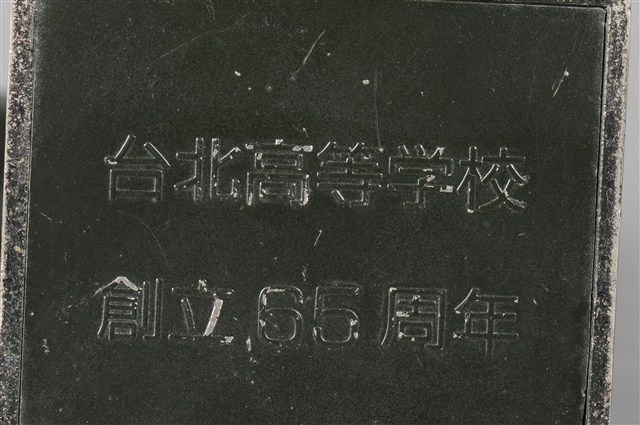 台北高等学校
創立65周年